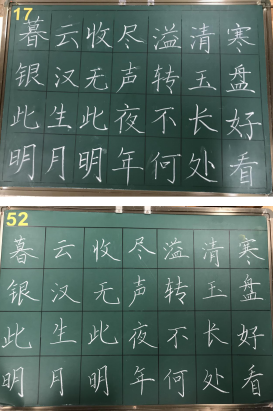 17
暮云收尽溢清寒
银汉无声转玉盘
此生此夜不长好
明月明年何处看
52
暮云收尽溢清寒
银汉无声转玉盘
此生此夜不长好
明月明年何处看